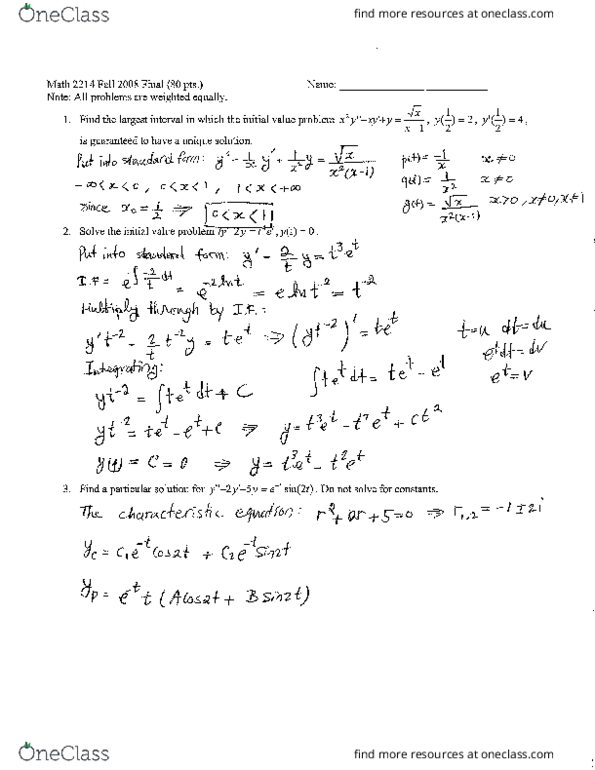 OneClass
find more resources at oneclass.com
Math 2214 Fall 2008 Final (80 pts.) Name:
Note: All problems are weighted equally.
1. Find the largest interval in which the initial value problem x²y''-xy'+y = √x/(x-1), y(1/2) = 2, y'(1/2) = 4,
is guaranteed to have a unique solution.
Put into standard form: y'' - 1/x y' + 1/x² y = √x/(x²(x-1)) p(t) = -1/x x≠0
-∞<x<0, 0<x<1, 1<x<+∞ q(t) = 1/x² x≠0
Since x₀ = 1/2 ⇒ 0<x<1 g(t) = √x/(x²(x-1)) x>0, x≠0, x≠1
2. Solve the initial value problem
Put into standard form: y' - 2/t y = t³e^t
I.F = e^∫-2/t dt = e^-2lnt = e^lnt^-2 = t^-2
Multiply through by I.F.:
y't^-2 - 2/t t^-2 y = te^t ⇒ (yt^-2)' = te^t t=u dt=du
Integrating: e^t dt = dv
yt^-2 = ∫te^t dt + C ∫te^t dt = te^t - e^t e^t = v
yt^-2 = te^t - e^t + c ⇒ y = t³e^t - t²e^t + ct²
y(1) = C = 0 ⇒ y = t³e^t - t²e^t
3. Find a particular solution for sin(2t). Do not solve for constants.
The characteristic equation: r² + 2r + 5 = 0 ⇒ r₁,₂ = -1 ± 2i
y_c = C₁e^-t cos2t + C₂e^-t sin2t
y_p = e^-t t (A cos2t + B sin2t)
OneClass
find more resources at oneclass.com